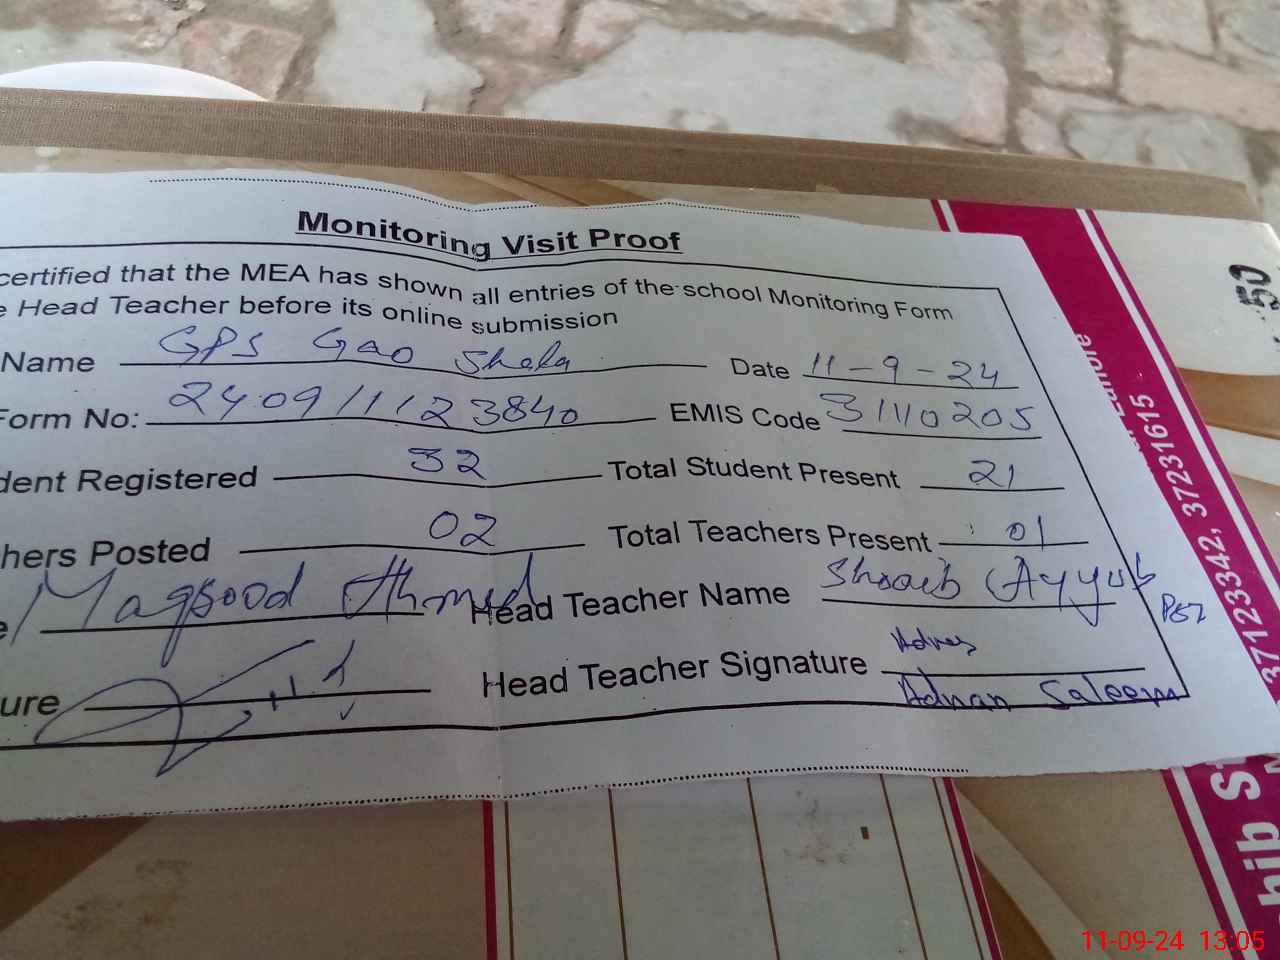 Monitoring Visit Proof
certified that the MEA has shown all entries of the school Monitoring Form
e Head Teacher before its online submission
Name GPS Gao Shala Date 11-9-24
Form No: 240911123840 EMIS Code 31110205
dent Registered 32 Total Student Present 21
hers Posted 02 Total Teachers Present 01
e Maqsood Ahmed Head Teacher Name Shoaib Ayyub
ure Head Teacher Signature
Adnan Saleem
50
37123342, 37231615
hib St
11-09-24 13:05